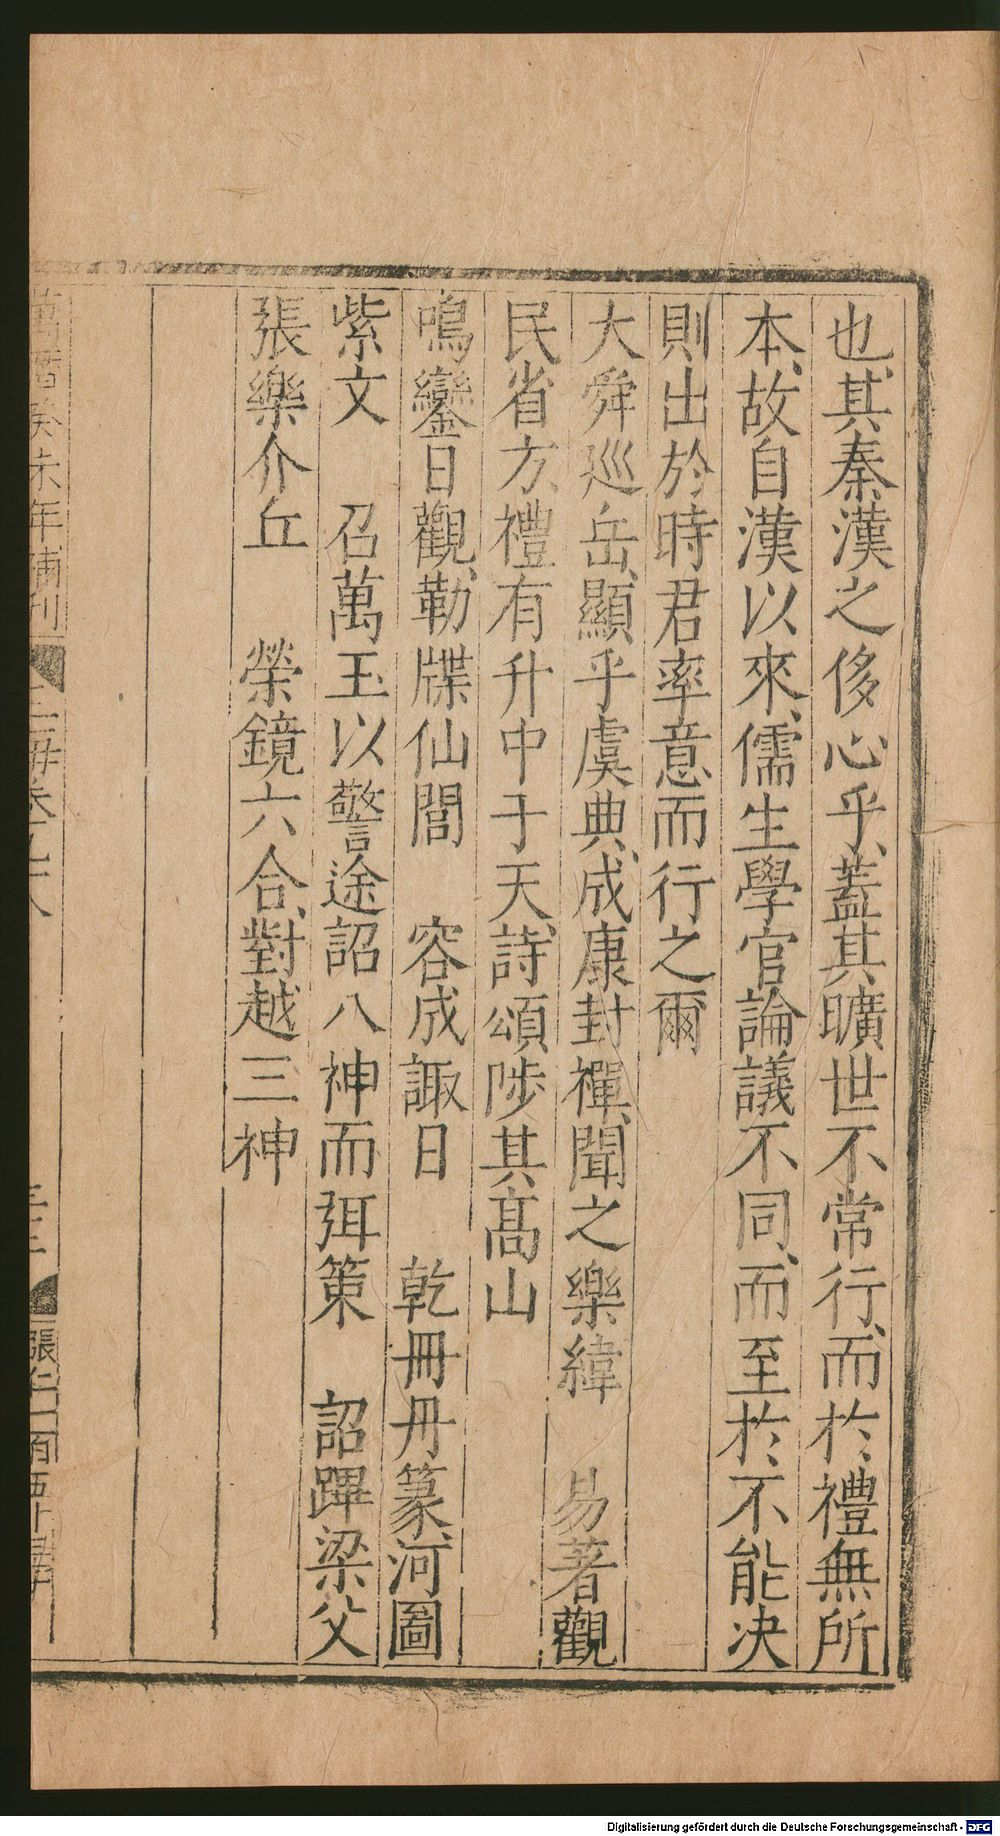 也其秦漢之侈心乎蓋其曠世不常行而於禮無所
本故自漢以來儒生學官論議不同而至於不能决
則出於時君率意而行之爾
大舜巡岳顯乎虞典成康封禪聞之樂緯　易著觀
民省方禮有升中于天詩頌陟其髙山
鳴鑾日觀勒牒仙閭　容成諏日　乾冊丹篆河圖
紫文　召萬玉以警途詔八神而弭策　詔蹕梁父
張樂介丘　榮鏡六合對越三神
萬曆癸未年補刊
Digitalisierung gefördert durch die Deutsche Forschungsgemeinschaft - DFG